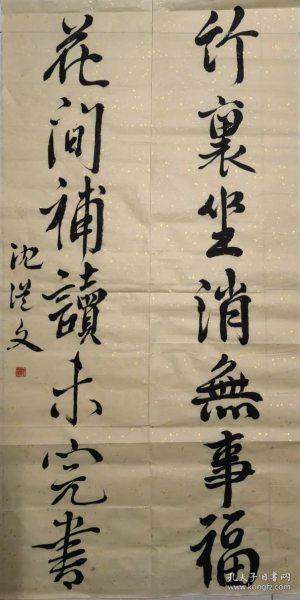 竹裏坐消無事福
花間補讀未完書
沈從文
孔夫子旧书网